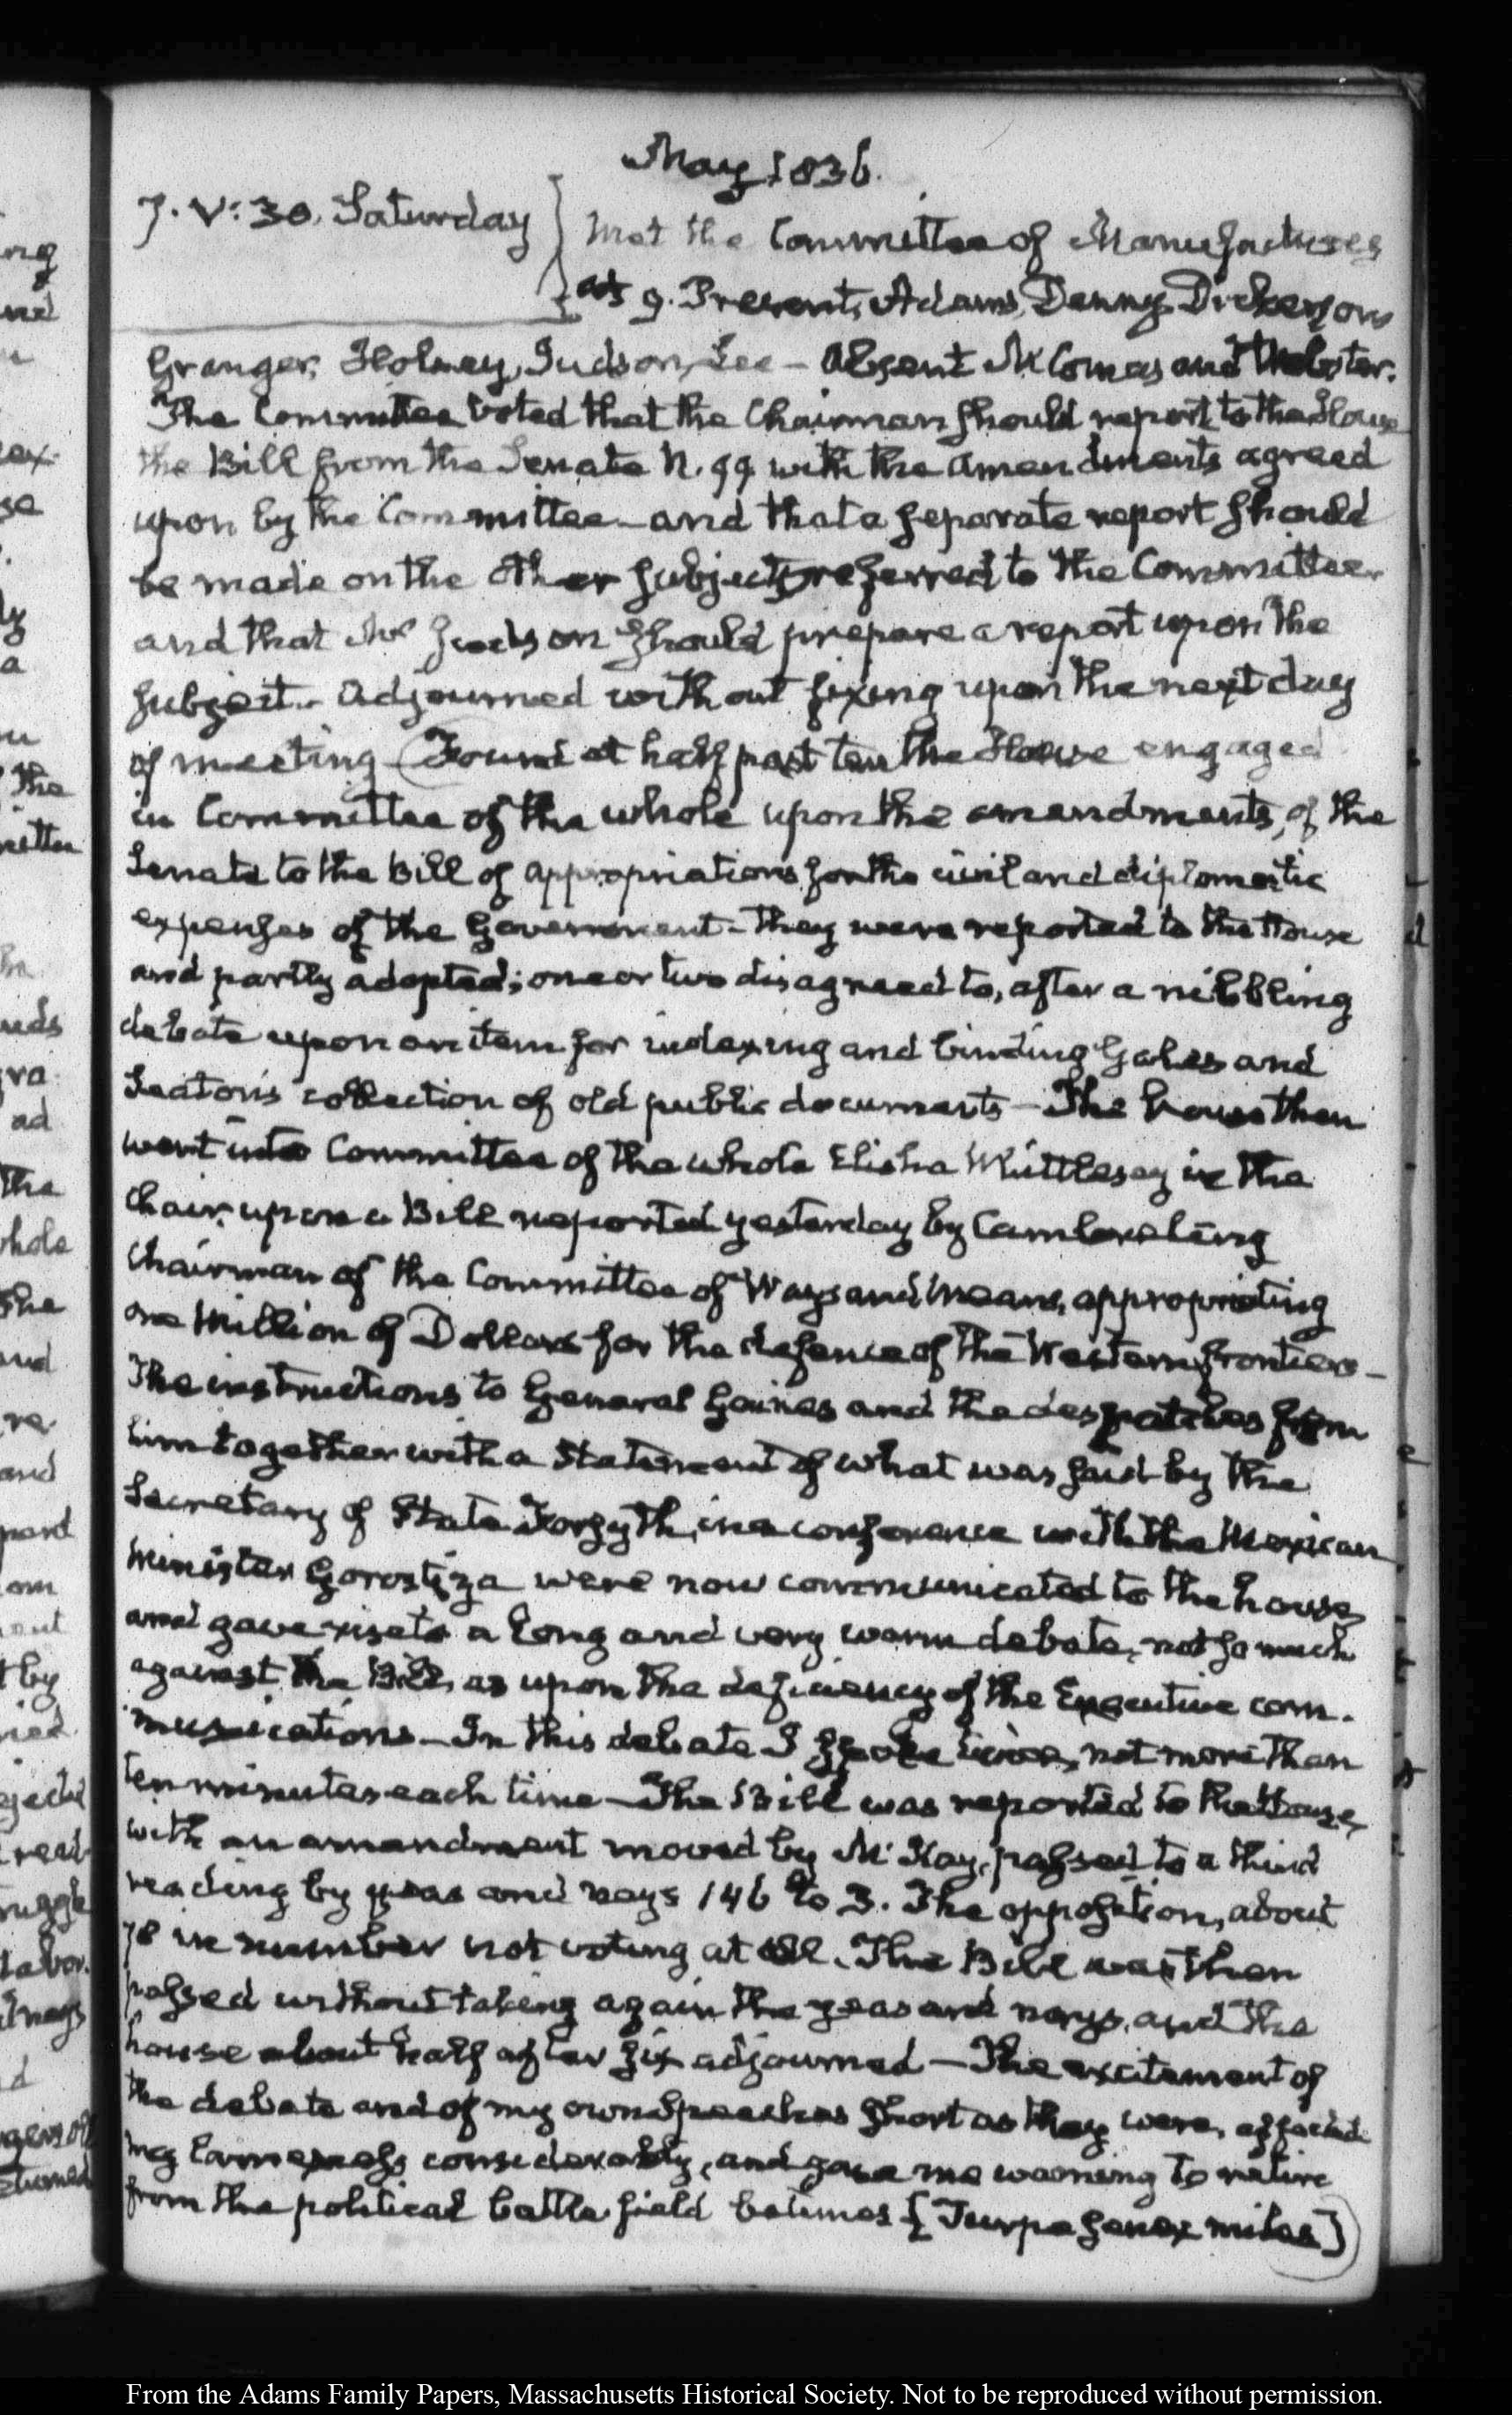 May 1836.
7. V:30. Saturday
Met the Committee of Manufactures
at 9. Present, Adams, Denny, Dickerson
Granger, Holsey, Judson, Lee — Absent McComas and Webster.
The Committee voted that the Chairman should report to the House
the Bill from the Senate N. 99 with the amendments agreed
upon by the Committee — and that a separate report should
be made on the other subjects referred to the Committee
and that Mr Judson should prepare a report upon the
subject. Adjourned without fixing upon the next day
of meeting (Found at half past ten the House engaged
in Committee of the whole upon the amendments, of the
Senate to the Bill of appropriations for the civil and diplomatic
expenses of the Government — they were reported to the House
and partly adopted; one or two disagreed to, after a nibbling
debate upon an item for indexing and binding Gales and
Seaton's collection of old public documents — The house then
went into Committee of the whole Elisha Whittlesey in the
Chair, upon a Bill reported yesterday by Cambreleng
Chairman of the Committee of Ways and Means, appropriating
one Million of Dollars for the defence of the Western frontiers —
The instructions to General Gaines and the despatches from
him together with a statement of what was said by the
Secretary of State Forsyth, in a conference with the Mexican
Minister Gorostiza were now communicated to the house,
and gave rise to a long and very warm debate, not so much
against the Bill, as upon the deficiency of the Executive com-
munications — In this debate I spoke twice, not more than
ten minutes each time — The Bill was reported to the House,
with an amendment moved by McKay, passed to a third
reading by yeas and nays 146 to 3. The opposition, about
78 in number not voting at all. The Bill was then
passed without taking again the yeas and nays, and the
house about half after six adjourned — The excitement of
the debate and of my own Speeches short as they were, affected
my considerably, and gave me warning to retire
from the political battle field betimes [Turpe senex miles])
ng
the
ex.
se
ly
a
the
ra
ad
the
hole
The
and
re.
and
om
by
read
labor.
nays
d
From the Adams Family Papers, Massachusetts Historical Society. Not to be reproduced without permission.